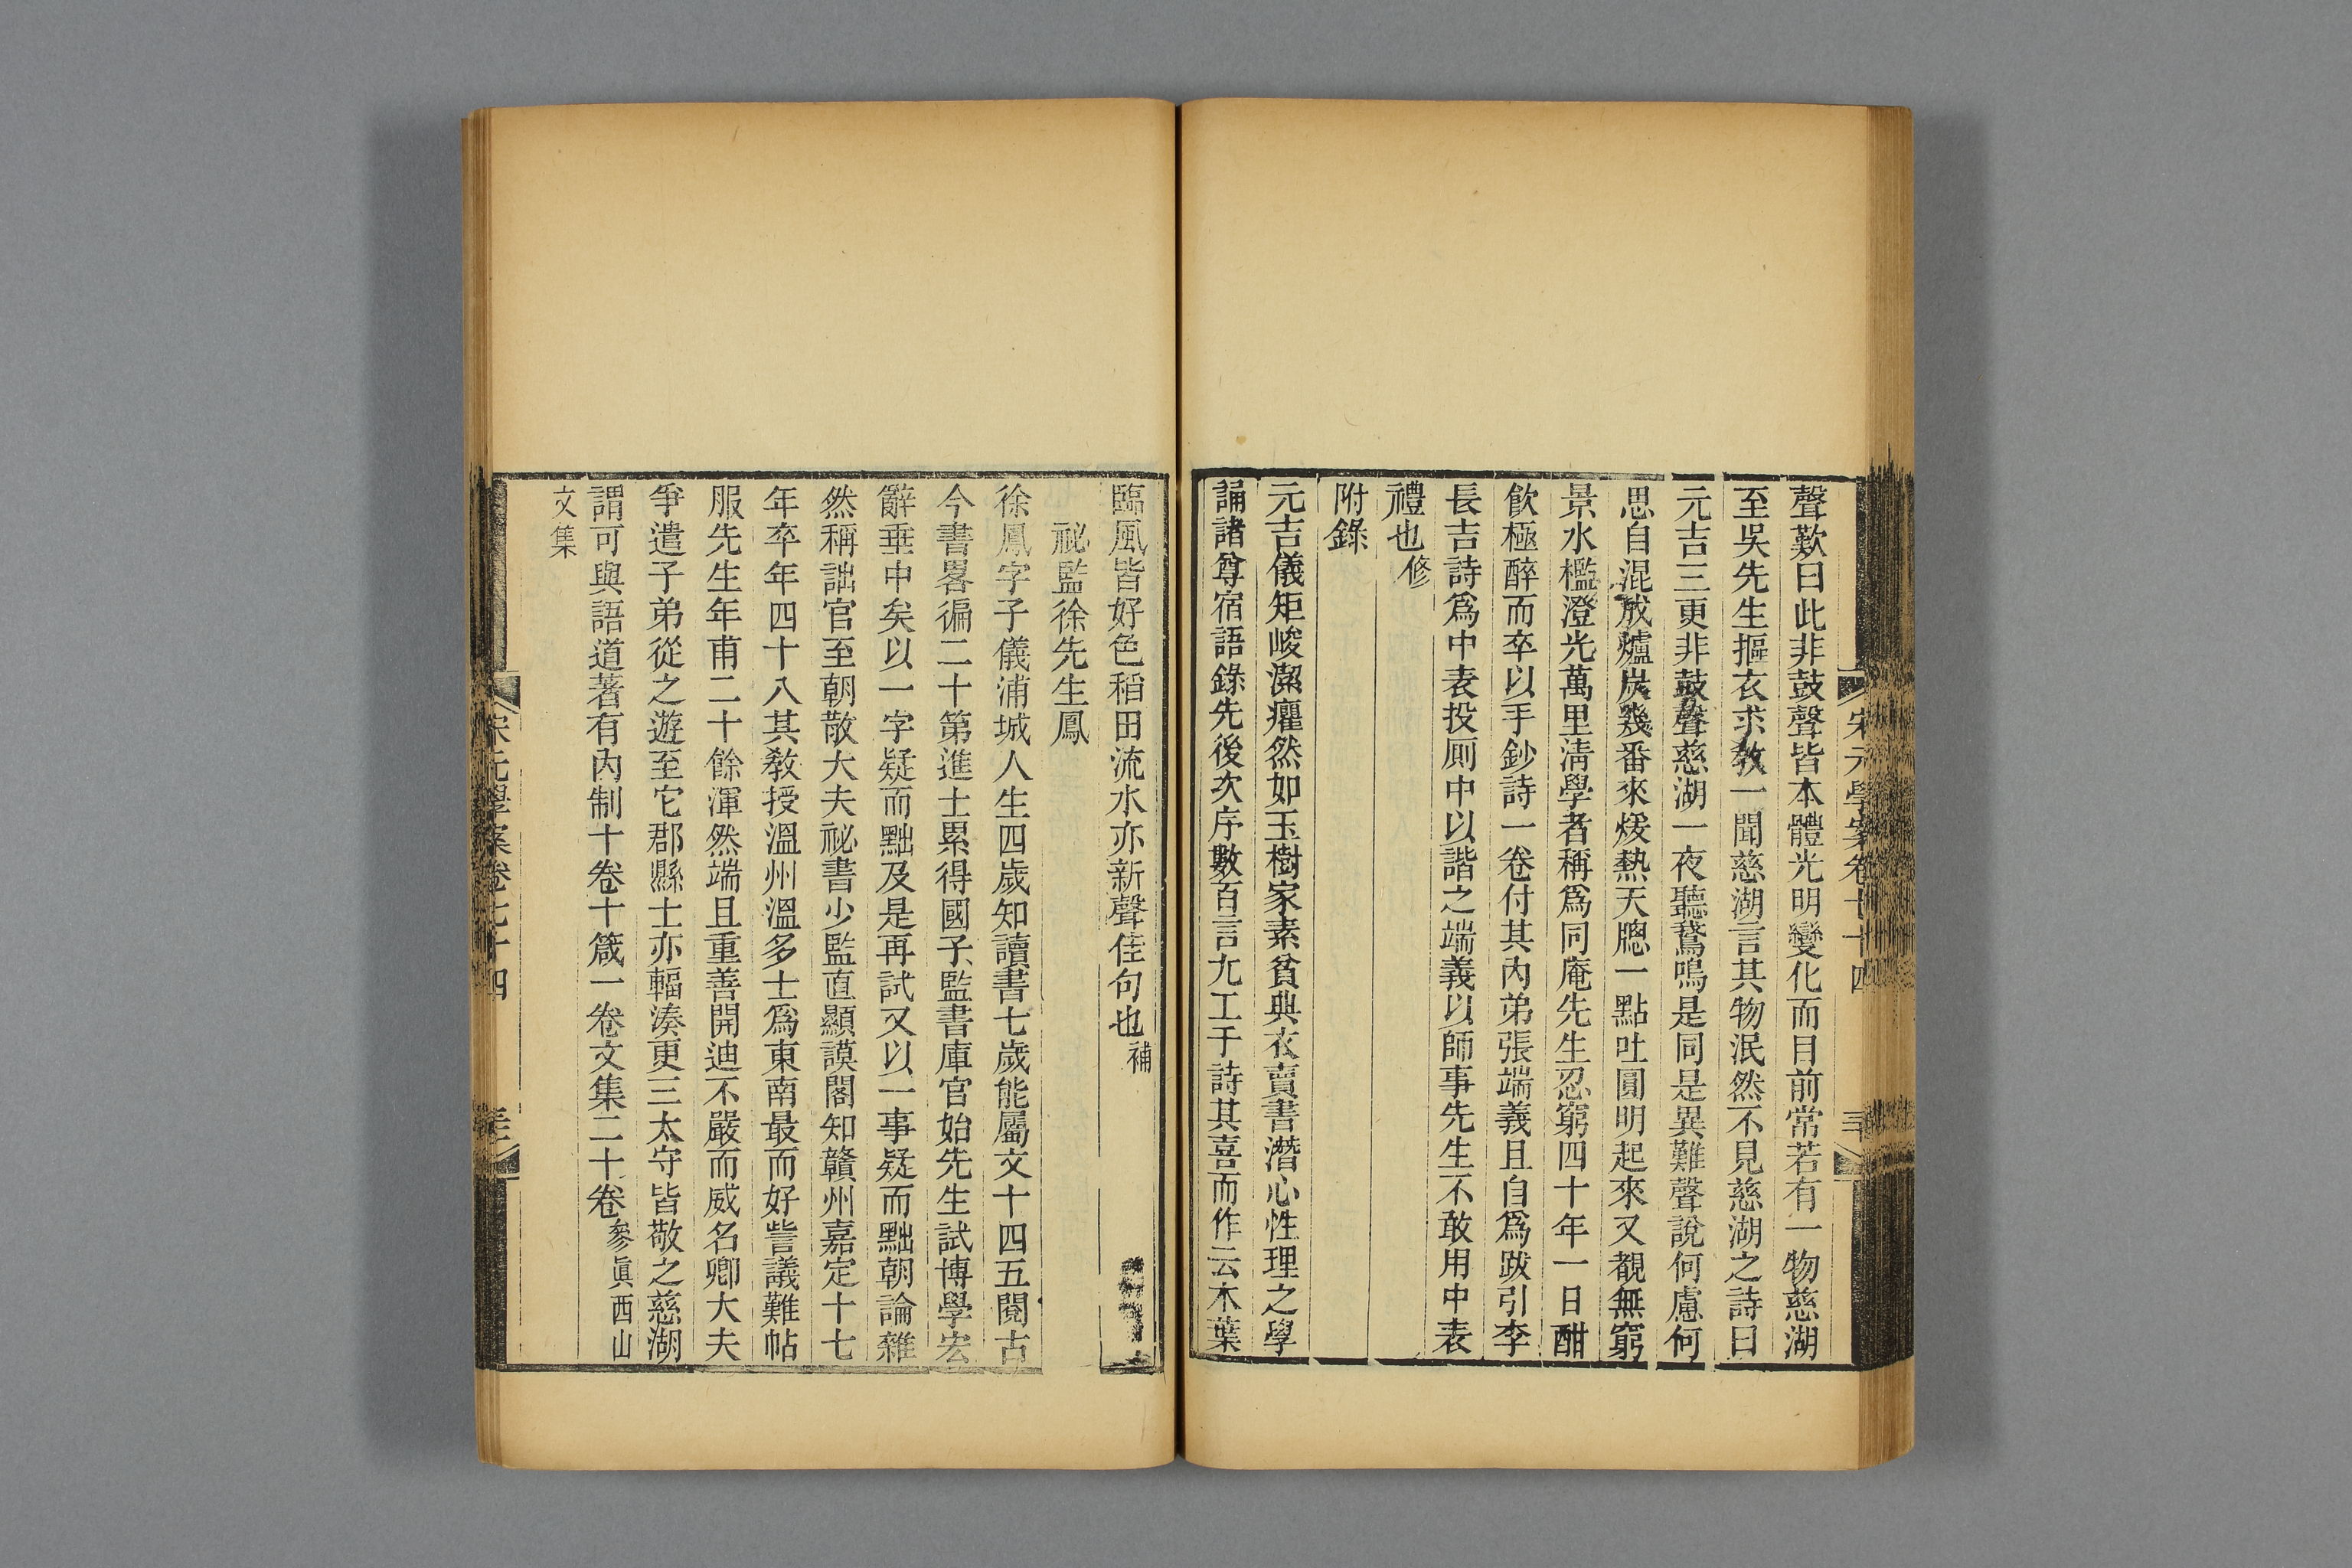 聲歎曰此非鼓聲皆本體光明變化而目前常若有一物慈湖
至吳先生摳衣求敎一聞慈湖言其物泯然不見慈湖之詩曰
元吉三更非鼓聲慈湖一夜聽鵞鳴是同是異難聲說何慮何
思自混成爐炭幾番來煖熱天牕一點吐圓明起來又覩無窮
景水檻澄光萬里淸學者稱爲同庵先生忍窮四十年一日酣
飮極醉而卒以手鈔詩一卷付其內弟張端義且自爲跋引李
長吉詩爲中表投厠中以諧之端義以師事先生不敢用中表
禮也修
附錄
元吉儀矩峻潔癯然如玉樹家素貧典衣賣書潛心性理之學
誦諸尊宿語錄先後次序數百言尢工于詩其喜而作云木葉
臨風皆好色稻田流水亦新聲佳句也補
祕監徐先生鳳
徐鳳字子儀浦城人生四歲知讀書七歲能屬文十四五閱古
今書畧徧二十第進士累得國子監書庫官始先生試博學宏
辭垂中矣以一字疑而黜及是再試又以一事疑而黜朝論雜
然稱詘官至朝散大夫祕書少監直顯謨閣知贛州嘉定十七
年卒年四十八其敎授溫州溫多士爲東南最而好訾議難帖
服先生年甫二十餘渾然端且重善開迪不嚴而威名卿大夫
爭遣子弟從之遊至它郡縣士亦輻湊更三太守皆敬之慈湖
謂可與語道著有內制十卷十箴一卷文集二十卷參眞西山
文集
宋元學案卷七十四